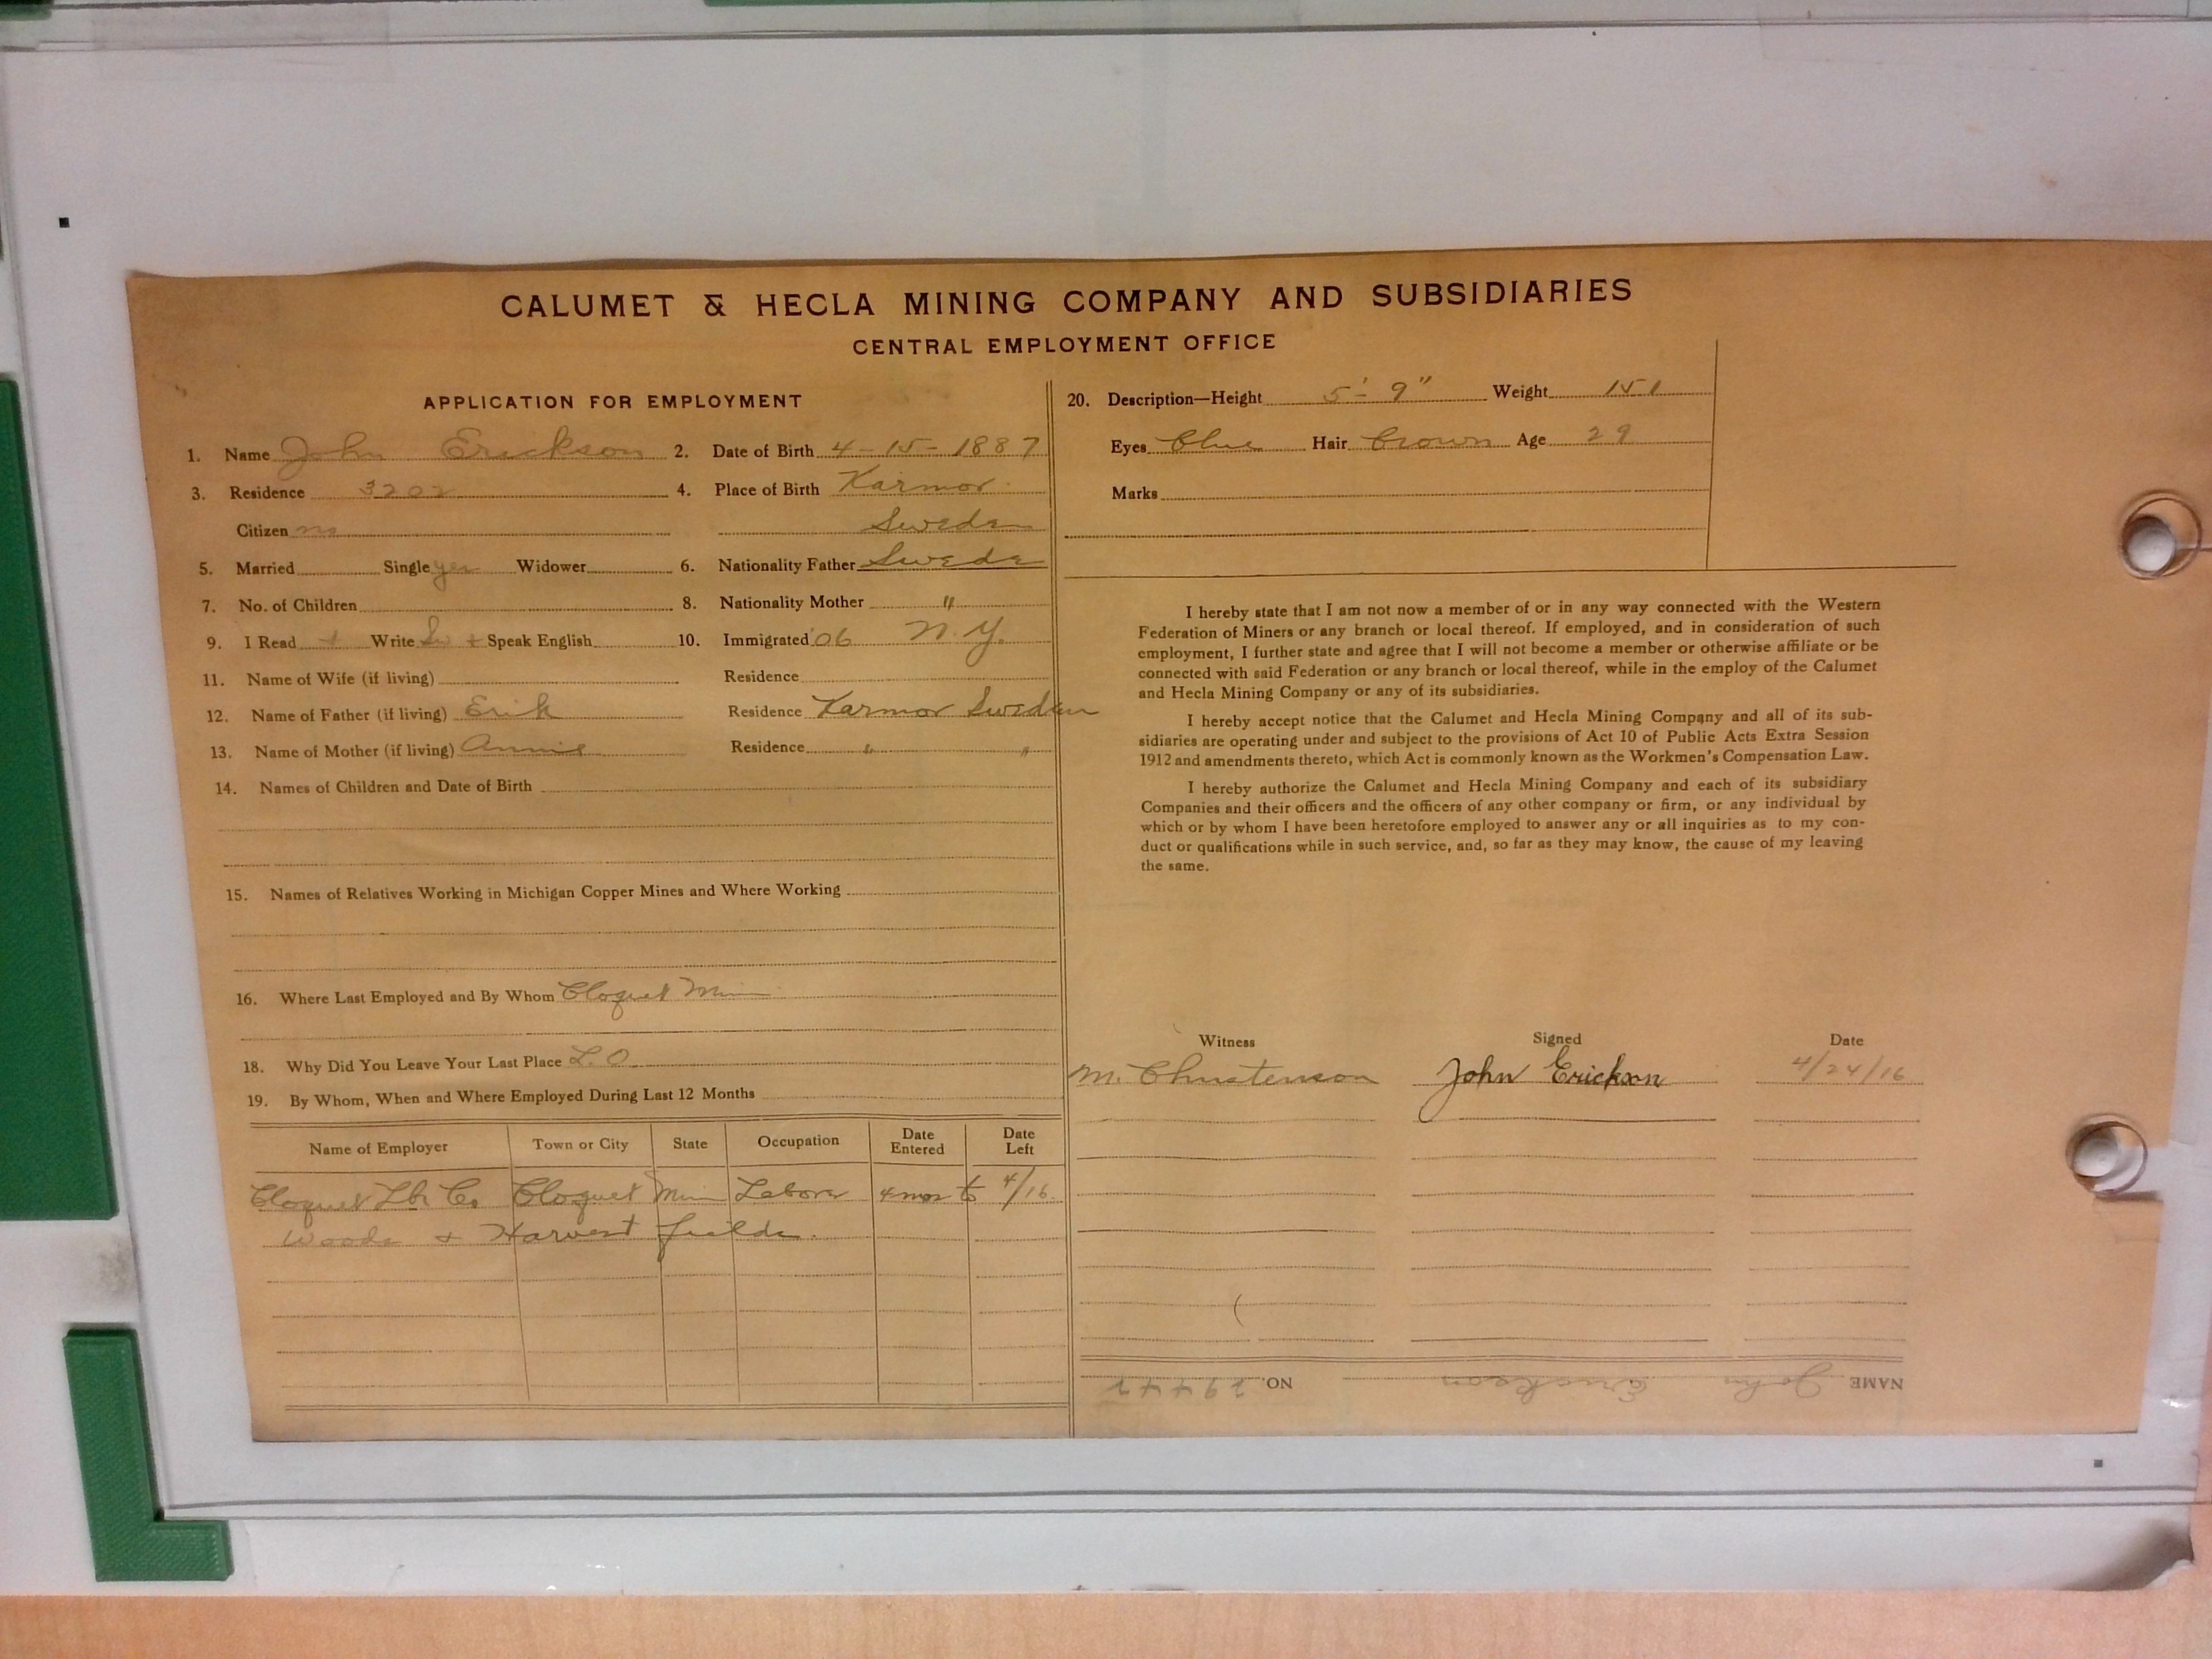 CALUMET & HECLA MINING COMPANY AND SUBSIDIARIES
CENTRAL EMPLOYMENT OFFICE
APPLICATION FOR EMPLOYMENT
1. Name John Erickson 2. Date of Birth 4-15-1887
3. Residence 3202 4. Place of Birth Karmor
Citizen no Sweden
5. Married Single yes Widower 6. Nationality Father Swede
7. No. of Children 8. Nationality Mother "
9. I Read + Write Sw + Speak English 10. Immigrated '06 N.Y.
11. Name of Wife (if living) Residence
12. Name of Father (if living) Erik Residence Karmor Sweden
13. Name of Mother (if living) Annie Residence " "
14. Names of Children and Date of Birth
15. Names of Relatives Working in Michigan Copper Mines and Where Working
16. Where Last Employed and By Whom Cloquet Minn
18. Why Did You Leave Your Last Place L.O.
19. By Whom, When and Where Employed During Last 12 Months
Name of Employer Town or City State Occupation Date Entered Date Left
Cloquet Lbr Co. Cloquet Minn Labore 4 mos to 4/16
Woods + Harvest fields.
20. Description—Height 5'-9" Weight 151
Eyes blue Hair brown Age 29
Marks
I hereby state that I am not now a member of or in any way connected with the Western
Federation of Miners or any branch or local thereof. If employed, and in consideration of such
employment, I further state and agree that I will not become a member or otherwise affiliate or be
connected with said Federation or any branch or local thereof, while in the employ of the Calumet
and Hecla Mining Company or any of its subsidiaries.
I hereby accept notice that the Calumet and Hecla Mining Company and all of its sub-
sidiaries are operating under and subject to the provisions of Act 10 of Public Acts Extra Session
1912 and amendments thereto, which Act is commonly known as the Workmen's Compensation Law.
I hereby authorize the Calumet and Hecla Mining Company and each of its subsidiary
Companies and their officers and the officers of any other company or firm, or any individual by
which or by whom I have been heretofore employed to answer any or all inquiries as to my con-
duct or qualifications while in such service, and, so far as they may know, the cause of my leaving
the same.
Witness Signed Date
M. Christenson John Erickson 4/24/16
NAME John Erickson NO. 29442